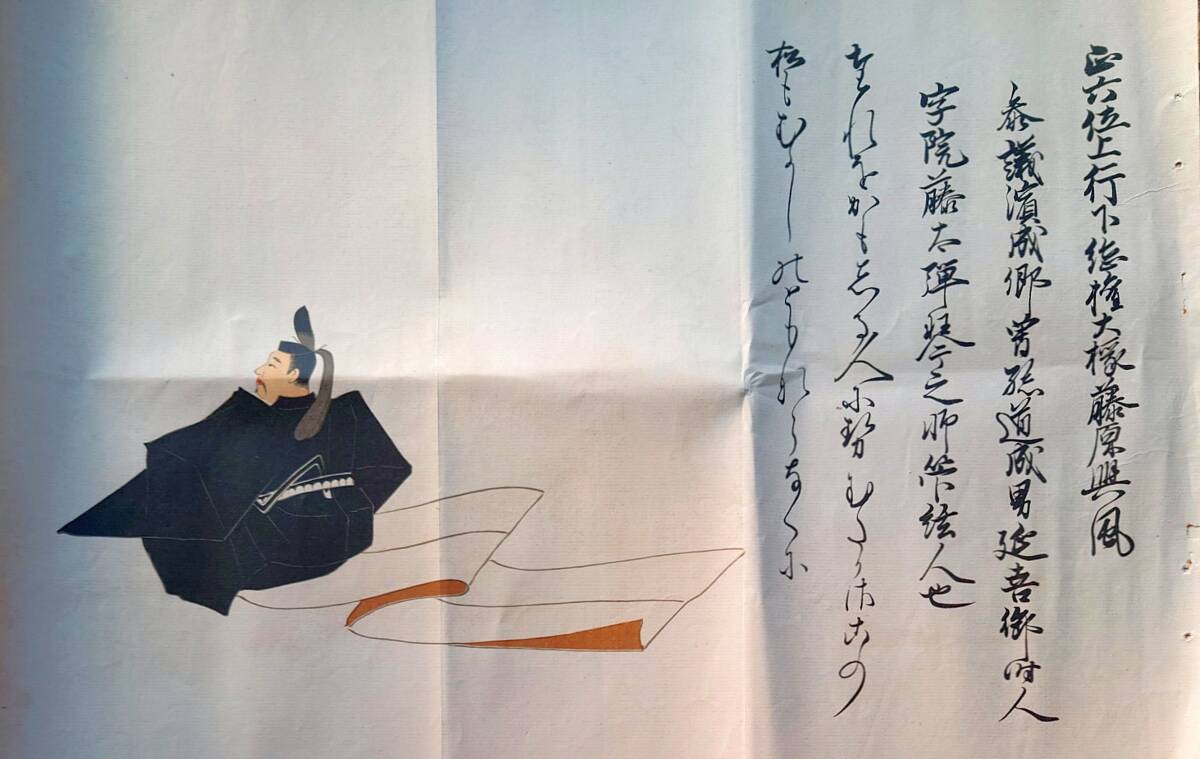 正六位上行下総権大掾藤原興風
参議濱成卿曽孫道成男延喜御時人
字院藤太弾琴之師管絃人也
たれをかもしる人にせむたかさこの
松もむかしのともならなくに